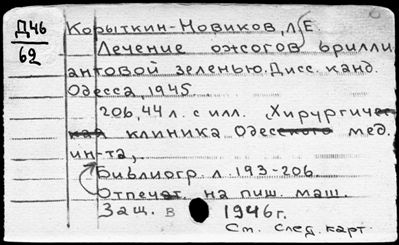 Д46
62
Корыткин-Новиков, Л.Е.
Лечение ожогов брилли
антовой зеленью. Дисс. канд.
Одесса, 1945.
206, 44 л. с илл. Хирургичес
кая клиника Одесского мед.
ин-та,
Библиогр. л. 193-206.
Отпечат. на пиш. маш.
Защ. в 1946г.
См. след. карт.